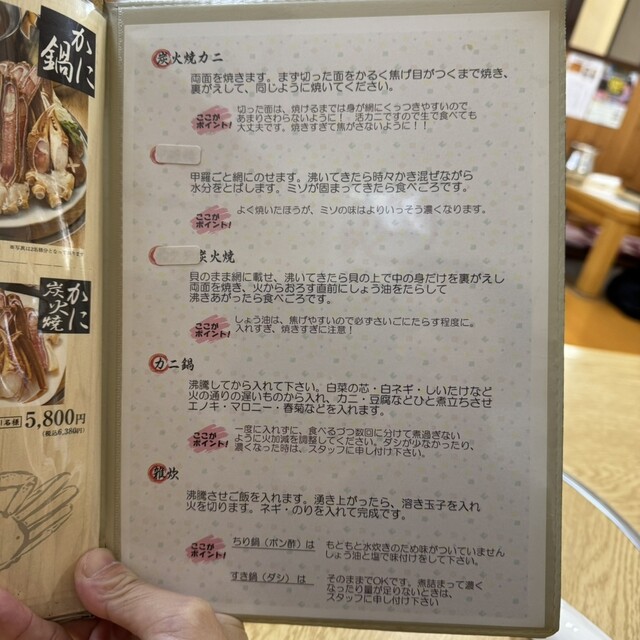 かに
鍋
かに
炭火焼
5,800円
(税込6,380円)
炭火焼カニ
両面を焼きます。まず切った面をかるく焦げ目がつくまで焼き、
裏がえして、同じように焼いてください。
ここが
ポイント!
切った面は、焼けるまでは身が網にくっつきやすいので
あまりさわらないように! 活カニですので生で食べても
大丈夫です。焼きすぎて焦がさないように!!
甲羅ごと網にのせます。沸いてきたら時々かき混ぜながら
水分をとばします。ミソが固まってきたら食べごろです。
ここが
ポイント!
よく焼いたほうが、ミソの味はよりいっそう濃くなります。
炭火焼
貝のまま網に載せ、沸いてきたら貝の上で中の身だけを裏がえし
両面を焼き、火からおろす直前にしょう油をたらして
沸きあがったら食べごろです。
ここが
ポイント!
しょう油は、焦げやすいので必ずさいごにたらす程度に。
入れすぎ、焼きすぎに注意!
カニ鍋
沸騰してから入れて下さい。白菜の芯・白ネギ・しいたけなど
火の通りの遅いものから入れ、カニ・豆腐などひと煮立ちさせ
エノキ・マロニー・春菊などを入れます。
ここが
ポイント!
一度に入れずに、食べるづつ数回に分けて煮過ぎない
ように火加減を調整してください。ダシが少なかったり、
濃くなった時は、スタッフに申し付け下さい。
雑炊
沸騰させご飯を入れます。湧き上がったら、溶き玉子を入れ
火を切ります。ネギ・のりを入れて完成です。
ここが
ポイント!
ちり鍋(ポン酢)は
もともと水炊きのため味がついていません
しょう油と塩で味付けをして下さい。
すき鍋(ダシ)は
そのままでOKです。煮詰まって濃く
なったり量が足りないときは、
スタッフに申し付け下さい